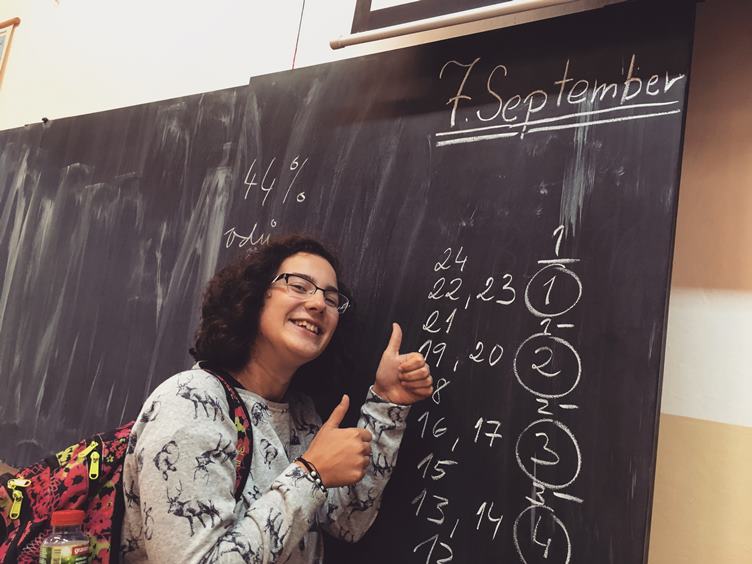 7. September
44 %
odů
24 1
22, 23 1
21 1-
19, 20 2
8 2-
16, 17 3
15 3-
13, 14 4
12